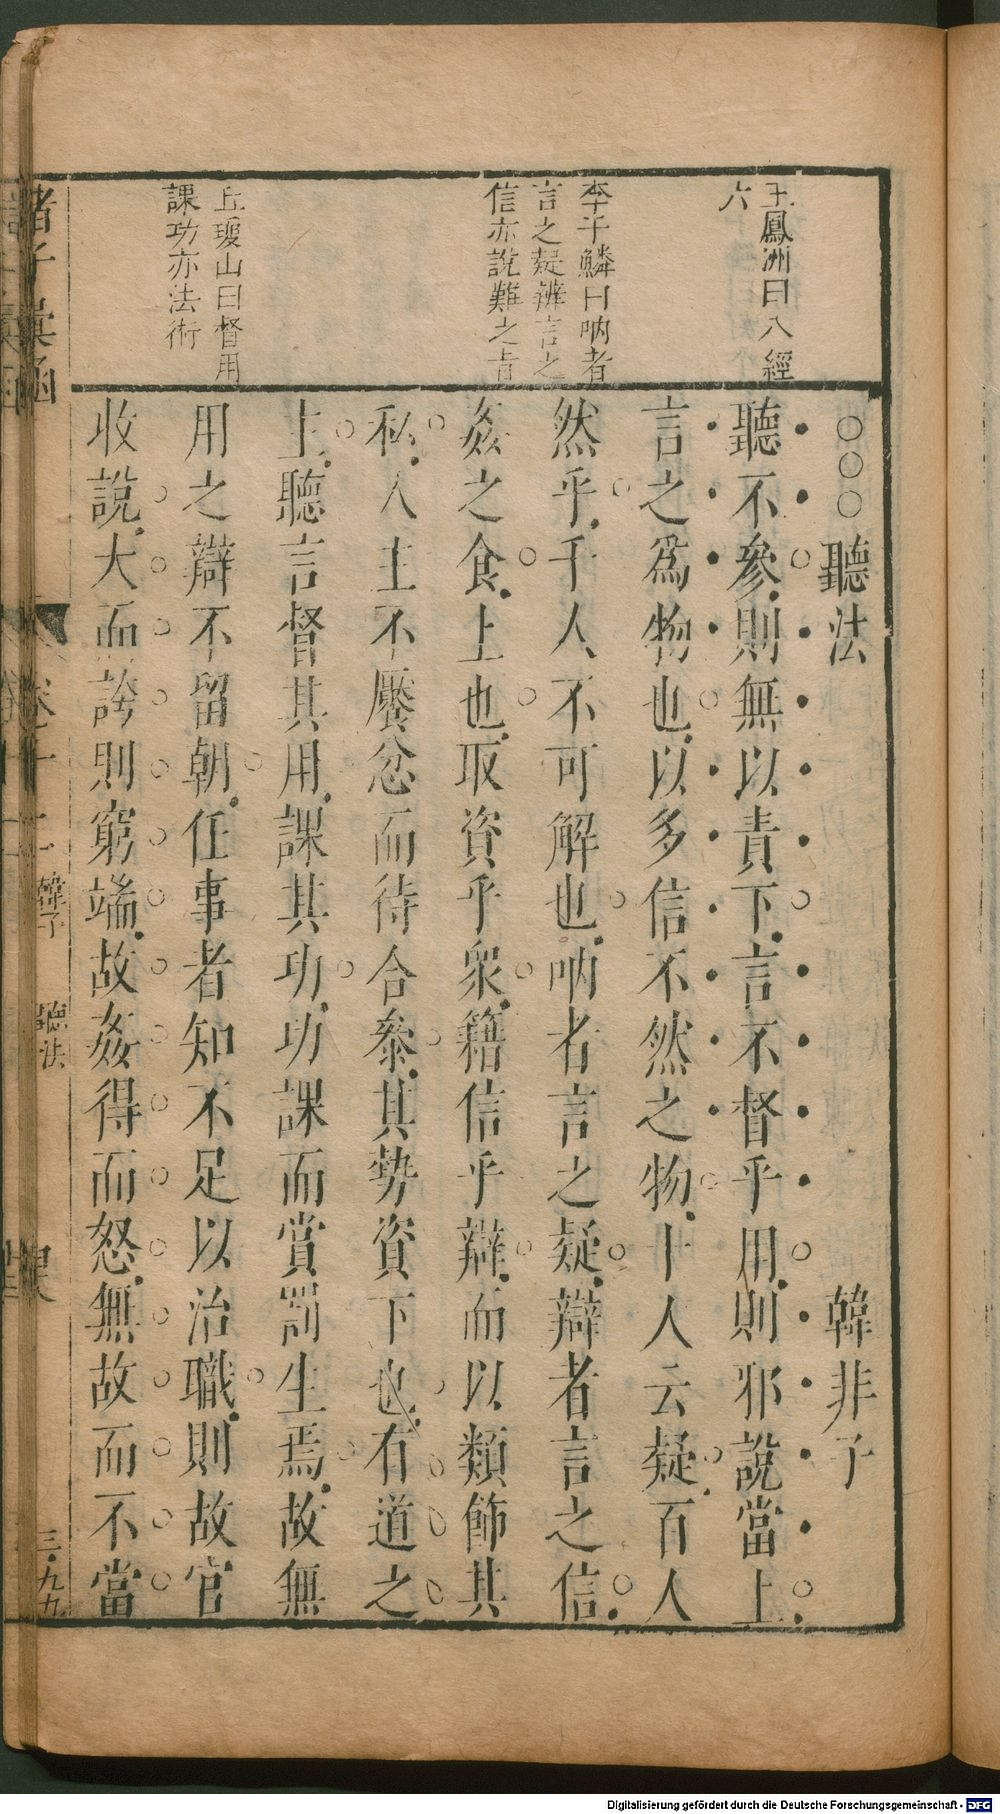 王鳳洲曰八經
六
李于鱗曰吶者
言之疑辨言之
信亦說難之㫖
丘瓊山曰督用
課功亦法術
○○○聽法 韓非子
聽不參則無以責下言不督乎用則邪說當上
言之爲物也以多信不然之物十人云疑百人
然乎千人不可解也吶者言之疑辯者言之信
姦之食上也取資乎衆籍信乎辯而以類飾其
私人主不饜忿而待合參其勢資下也有道之
上聽言督其用課其功功課而賞罰生焉故無
用之辯不留朝任事者知不足以治職則故官
收說大而誇則窮端故姦得而怒無故而不當
諸子彙函 卷十二 韓子 聽法 三九九
Digitalisierung gefördert durch die Deutsche Forschungsgemeinschaft - DFG